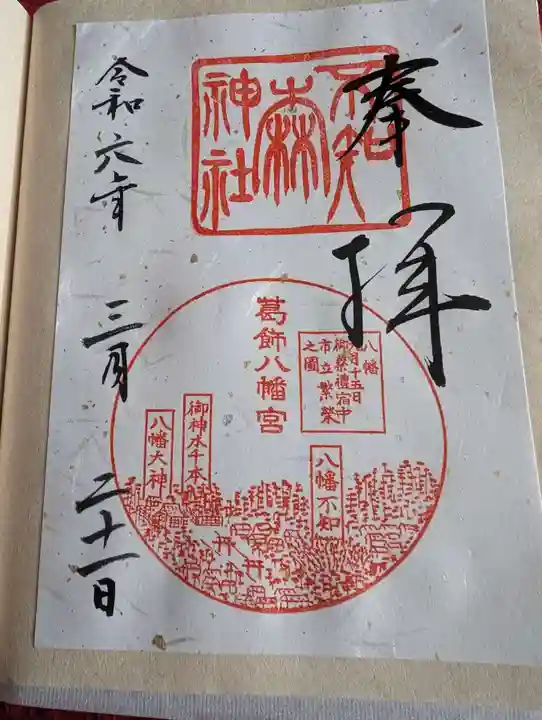 奉拝
不知
森
神社
葛飾八幡宮
八幡
八月十五日
御祭禮宿中
市立繁榮
之圖
八幡不知
御神木千本
八幡大神
令和六年
三月
二十一日